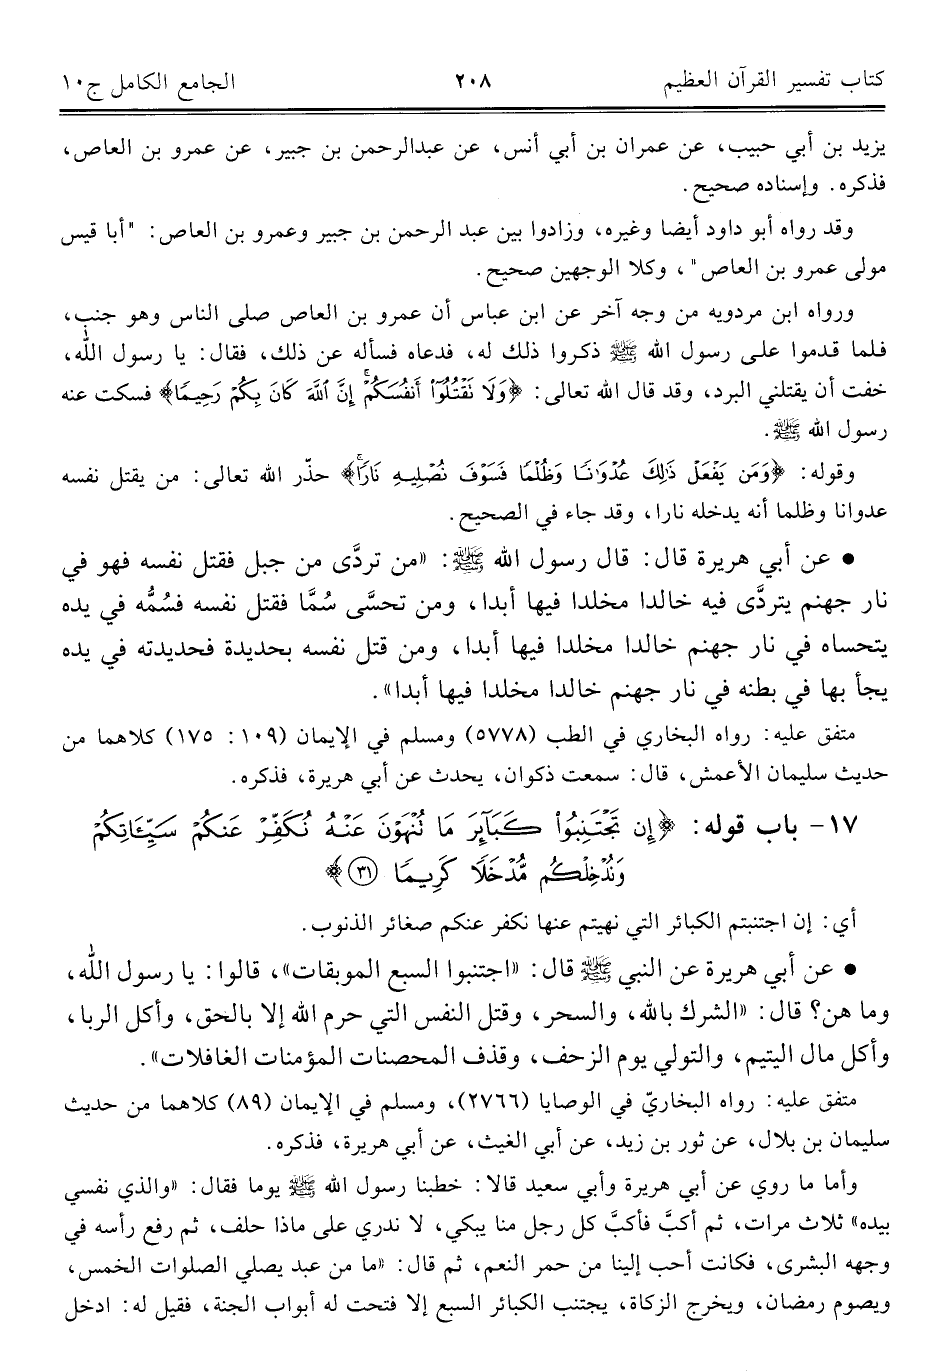 كتاب تفسير القرآن العظيم ٢٠٨ الجامع الكامل ج١٠
يزيد بن أبي حبيب، عن عمران بن أبي أنس، عن عبدالرحمن بن جبير، عن عمرو بن العاص،
فذكره. وإسناده صحيح.
وقد رواه أبو داود أيضا وغيره، وزادوا بين عبد الرحمن بن جبير وعمرو بن العاص: "أبا قيس
مولى عمرو بن العاص"، وكلا الوجهين صحيح.
ورواه ابن مردويه من وجه آخر عن ابن عباس أن عمرو بن العاص صلى الناس وهو جنب،
فلما قدموا على رسول الله ﷺ ذكروا ذلك له، فدعاه فسأله عن ذلك، فقال: يا رسول الله،
خفت أن يقتلني البرد، وقد قال الله تعالى: ﴿وَلَا نَقْتُلُوٓا۟ أَنفُسَكُمْ ۚ إِنَّ ٱللَّهَ كَانَ بِكُمْ رَحِيمًا﴾ فسكت عنه
رسول الله ﷺ.
وقوله: ﴿وَمَن يَفْعَلْ ذَٰلِكَ عُدْوَٰنًا وَظُلْمًا فَسَوْفَ نُصْلِيهِ نَارًا ۚ﴾ حذّر الله تعالى: من يقتل نفسه
عدوانا وظلما أنه يدخله نارا، وقد جاء في الصحيح.
• عن أبي هريرة قال: قال رسول الله ﷺ: «من تردَّى من جبل فقتل نفسه فهو في
نار جهنم يتردَّى فيه خالدا مخلدا فيها أبدا، ومن تحسَّى سُمًّا فقتل نفسه فسُمُّه في يده
يتحساه في نار جهنم خالدا مخلدا فيها أبدا، ومن قتل نفسه بحديدة فحديدته في يده
يجأ بها في بطنه في نار جهنم خالدا مخلدا فيها أبدا».
متفق عليه: رواه البخاري في الطب (٥٧٧٨) ومسلم في الإيمان (١٠٩: ١٧٥) كلاهما من
حديث سليمان الأعمش، قال: سمعت ذكوان، يحدث عن أبي هريرة، فذكره.
١٧- باب قوله: ﴿إِن تَجْتَنِبُوا۟ كَبَآئِرَ مَا نُنْهَوْنَ عَنْهُ نُكَفِّرْ عَنكُمْ سَيِّـَٔاتِكُمْ
وَنُدْخِلْكُم مُّدْخَلًا كَرِيمًا ٣١﴾
أي: إن اجتنبتم الكبائر التي نهيتم عنها نكفر عنكم صغائر الذنوب.
• عن أبي هريرة عن النبي ﷺ قال: «اجتنبوا السبع الموبقات»، قالوا: يا رسول الله،
وما هن؟ قال: «الشرك بالله، والسحر، وقتل النفس التي حرم الله إلا بالحق، وأكل الربا،
وأكل مال اليتيم، والتولي يوم الزحف، وقذف المحصنات المؤمنات الغافلات».
متفق عليه: رواه البخاريّ في الوصايا (٢٧٦٦)، ومسلم في الإيمان (٨٩) كلاهما من حديث
سليمان بن بلال، عن ثور بن زيد، عن أبي الغيث، عن أبي هريرة، فذكره.
وأما ما روي عن أبي هريرة وأبي سعيد قالا: خطبنا رسول الله ﷺ يوما فقال: «والذي نفسي
بيده» ثلاث مرات، ثم أكبَّ فأكبَّ كل رجل منا يبكي، لا ندري على ماذا حلف، ثم رفع رأسه في
وجهه البشرى، فكانت أحب إلينا من حمر النعم، ثم قال: «ما من عبد يصلي الصلوات الخمس،
ويصوم رمضان، ويخرج الزكاة، يجتنب الكبائر السبع إلا فتحت له أبواب الجنة، فقيل له: ادخل